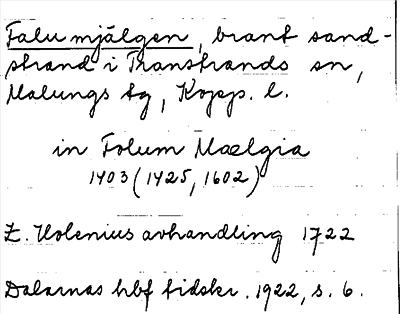 Falu mjälgen, brant sand-
strand i Transtrands sn,
Malungs tg, Kopp. l.
in Folum Mælgia
1403 (1425, 1602)
Z. Holenius avhandling 1722
Dalarnas hbf tidskr. 1922, s. 6.